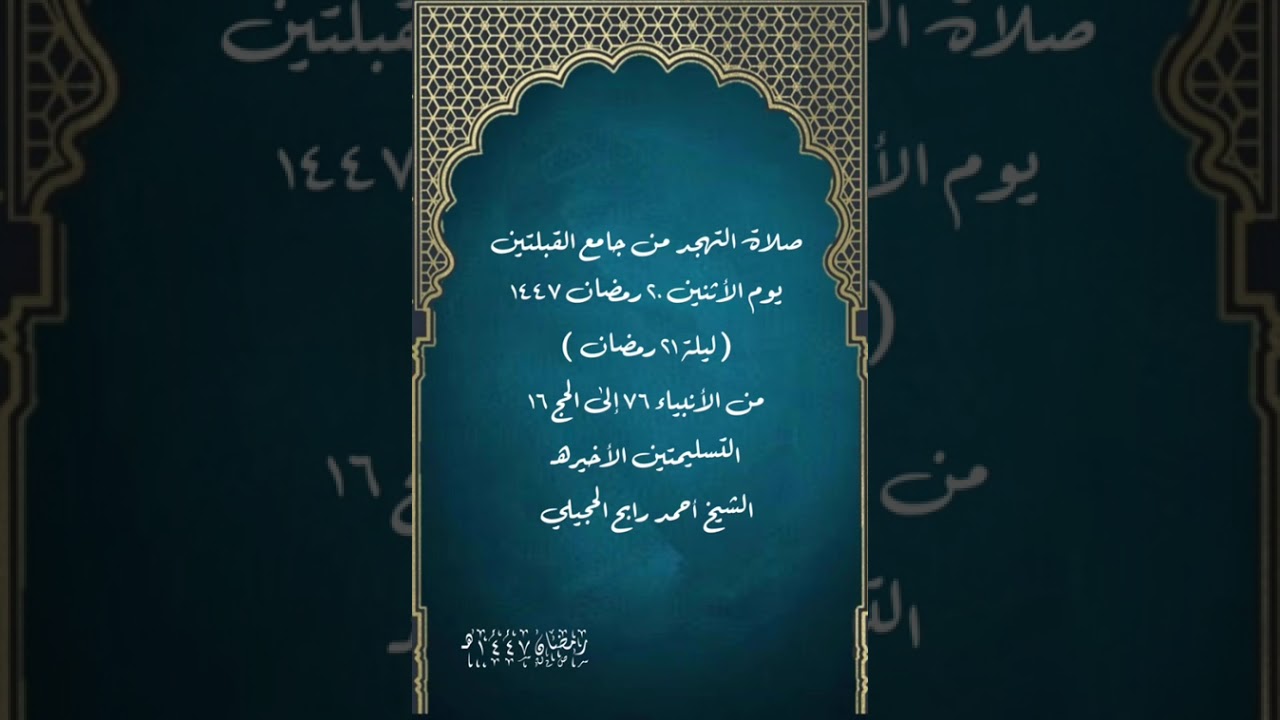 صلاة التهجد من جامع القبلتين
يوم الأثنين ٢٠ رمضان ١٤٤٧
( ليلة ٢١ رمضان )
من الأنبياء ٧٦ إلى الحج ١٦
التسليمتين الأخيره
الشيخ أحمد رابح الحجيلي
رمضان ١٤٤٧هـ